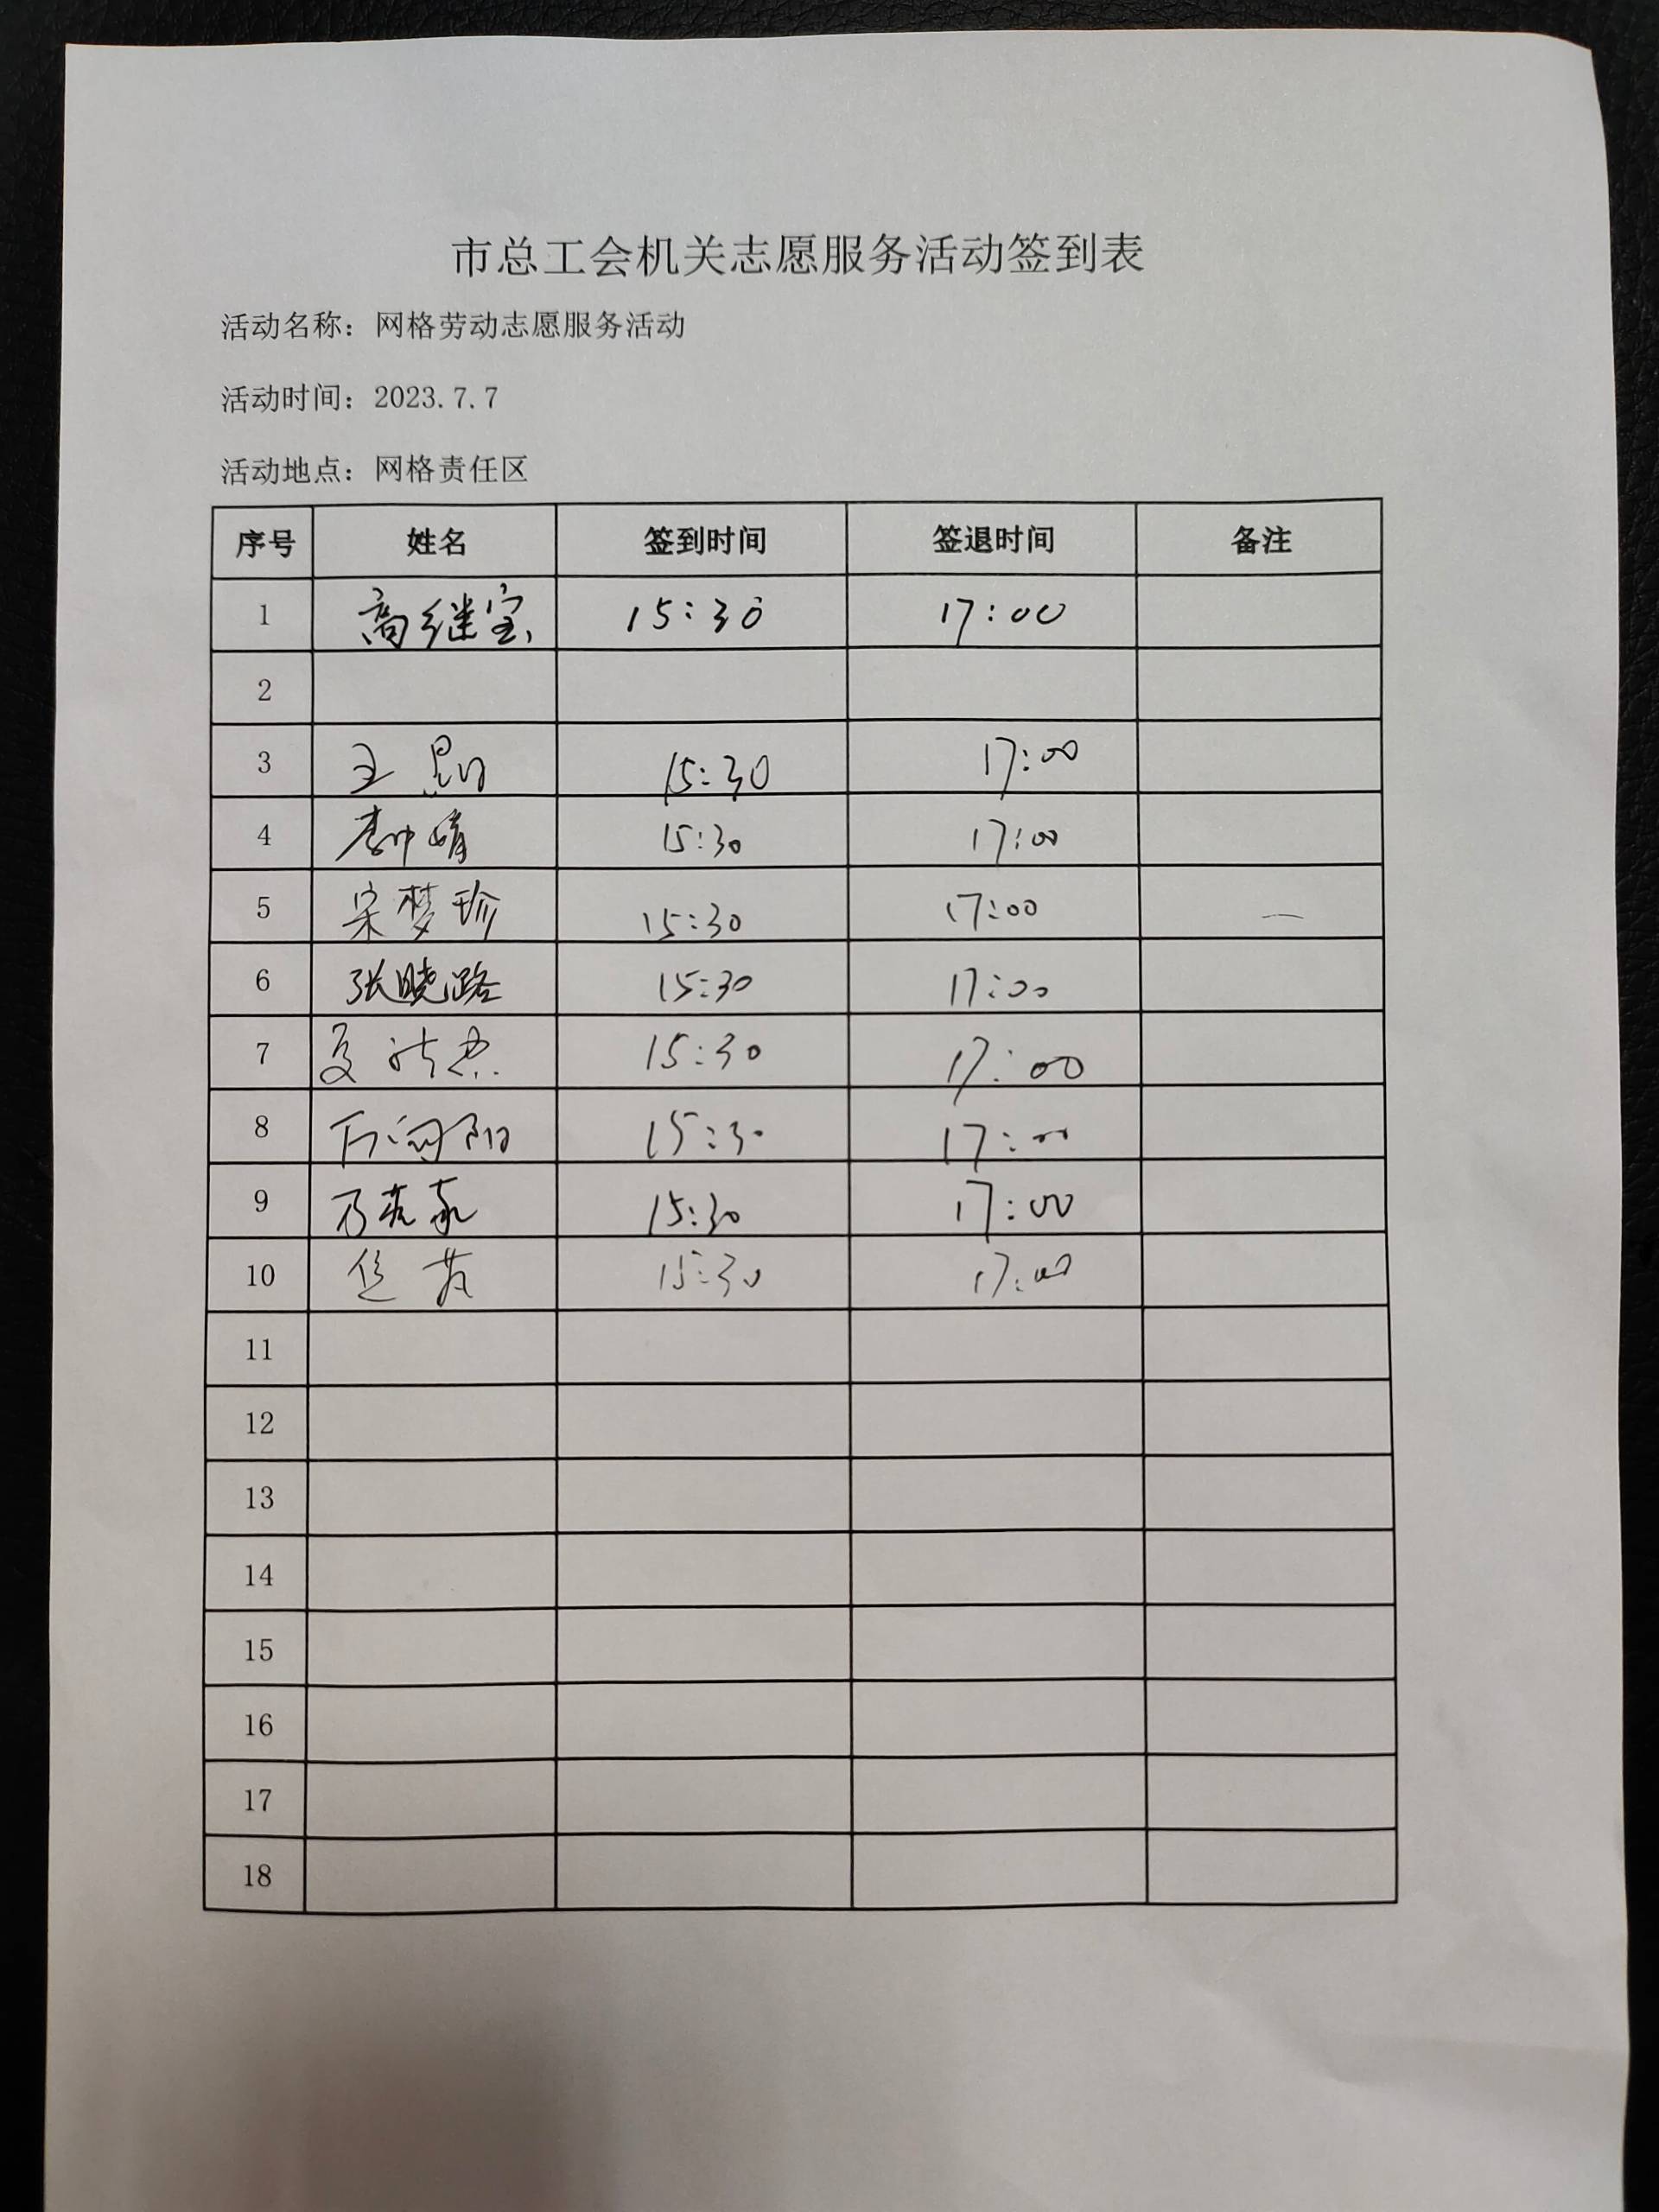 市总工会机关志愿服务活动签到表
活动名称：网格劳动志愿服务活动
活动时间：2023.7.7
活动地点：网格责任区
序号 姓名 签到时间 签退时间 备注
1 高继宝 15:30 17:00
2
3 王 15:30 17:00
4 15:30 17:00
5 宋梦珍 15:30 17:00 —
6 张晓路 15:30 17:00
7 夏 15:30 17:00
8 15:30 17:00
9 15:30 17:00
10 15:30 17:00
11
12
13
14
15
16
17
18